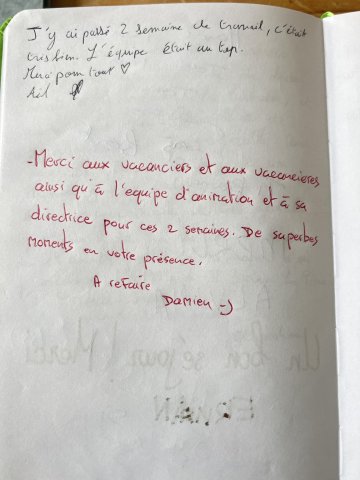 J'y ai passé 2 semaine de travail, c'était
tres bien. L'équipe était au top.
Merci pour tout ♡
- Merci aux vacanciers et aux vacancieres
ainsi qu'à l'equipe d'animation et à sa
directrice pour ces 2 semaines. De superbes
moments en votre présence.
A refaire
Damien :-)
Un bon séjour ! Merci
ERWAN